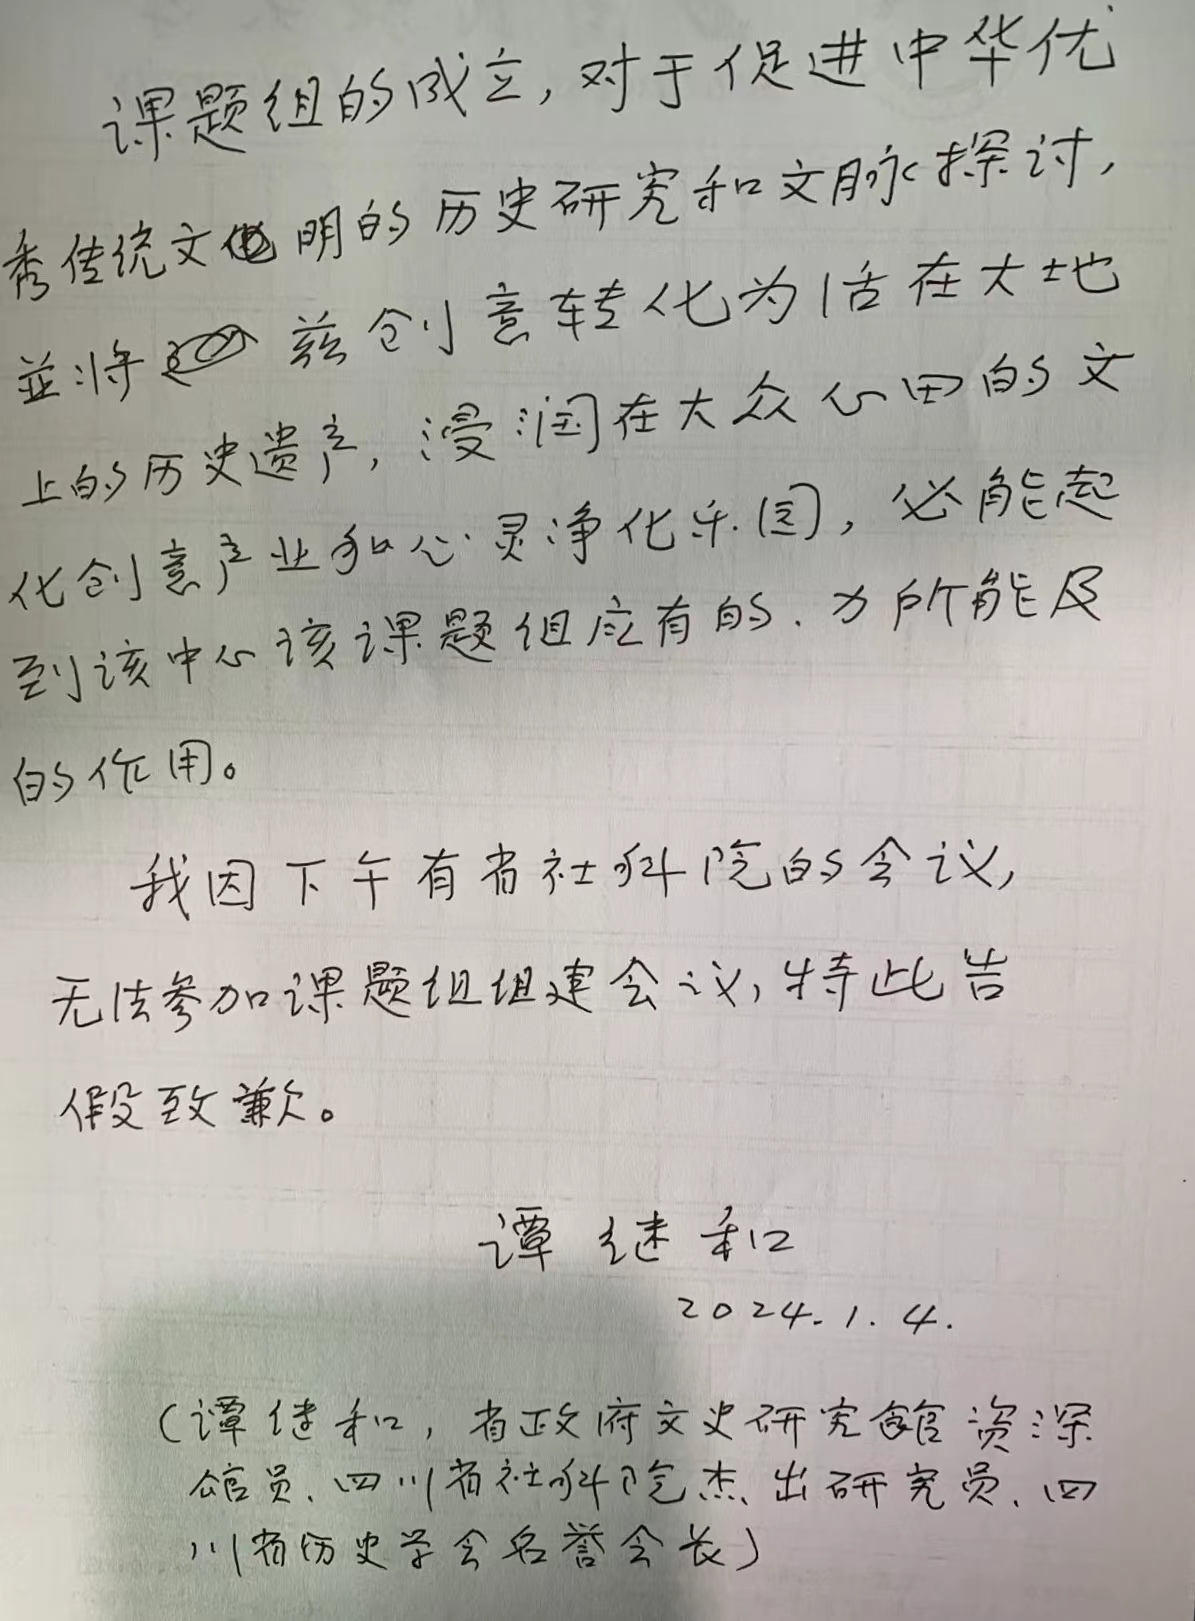 课题组的成立，对于促进中华优
秀传统文明的历史研究和文脉探讨，
並将兹创意转化为活在大地
上的历史遗产，浸润在大众心田的文
化创意产业和心灵净化乐园，必能起
到该中心该课题组应有的、力所能及
的作用。
我因下午有省社科院的会议，
无法参加课题组组建会议，特此告
假致歉。
谭继和
2024.1.4.
（谭继和，省政府文史研究馆资深
馆员、四川省社科院杰出研究员、四
川省历史学会名誉会长）